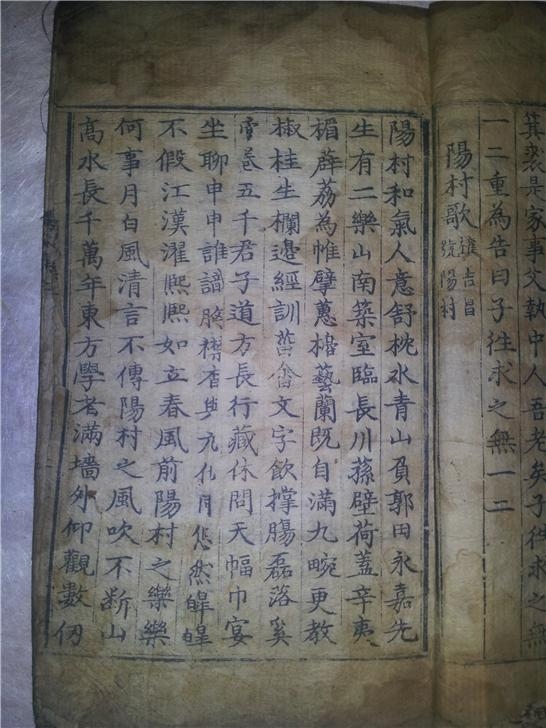 箕裘是家事父執中人吾老矣子徃求之無
一二重為告曰子徃求之無一二
陽村歌 權吉昌
號陽村
陽村和氣人意舒枕水青山負郭田永嘉先
生有二樂山南築室臨長川蓀壁荷蓋辛夷
楣薜荔為帷擘蕙櫋藝蘭既自滿九畹更教
椒桂生欄邊經訓菑畬文字飲撐膓磊落奚
啻卷五千君子道方長行藏休問天幅巾宴
坐聊申申誰譜襟然皥皥
不假江漢濯熙熙如立春風前陽村之樂樂
何事月白風清言不傳陽村之風吹不断山
髙水長千萬年東方學者滿墻外仰觀數仞